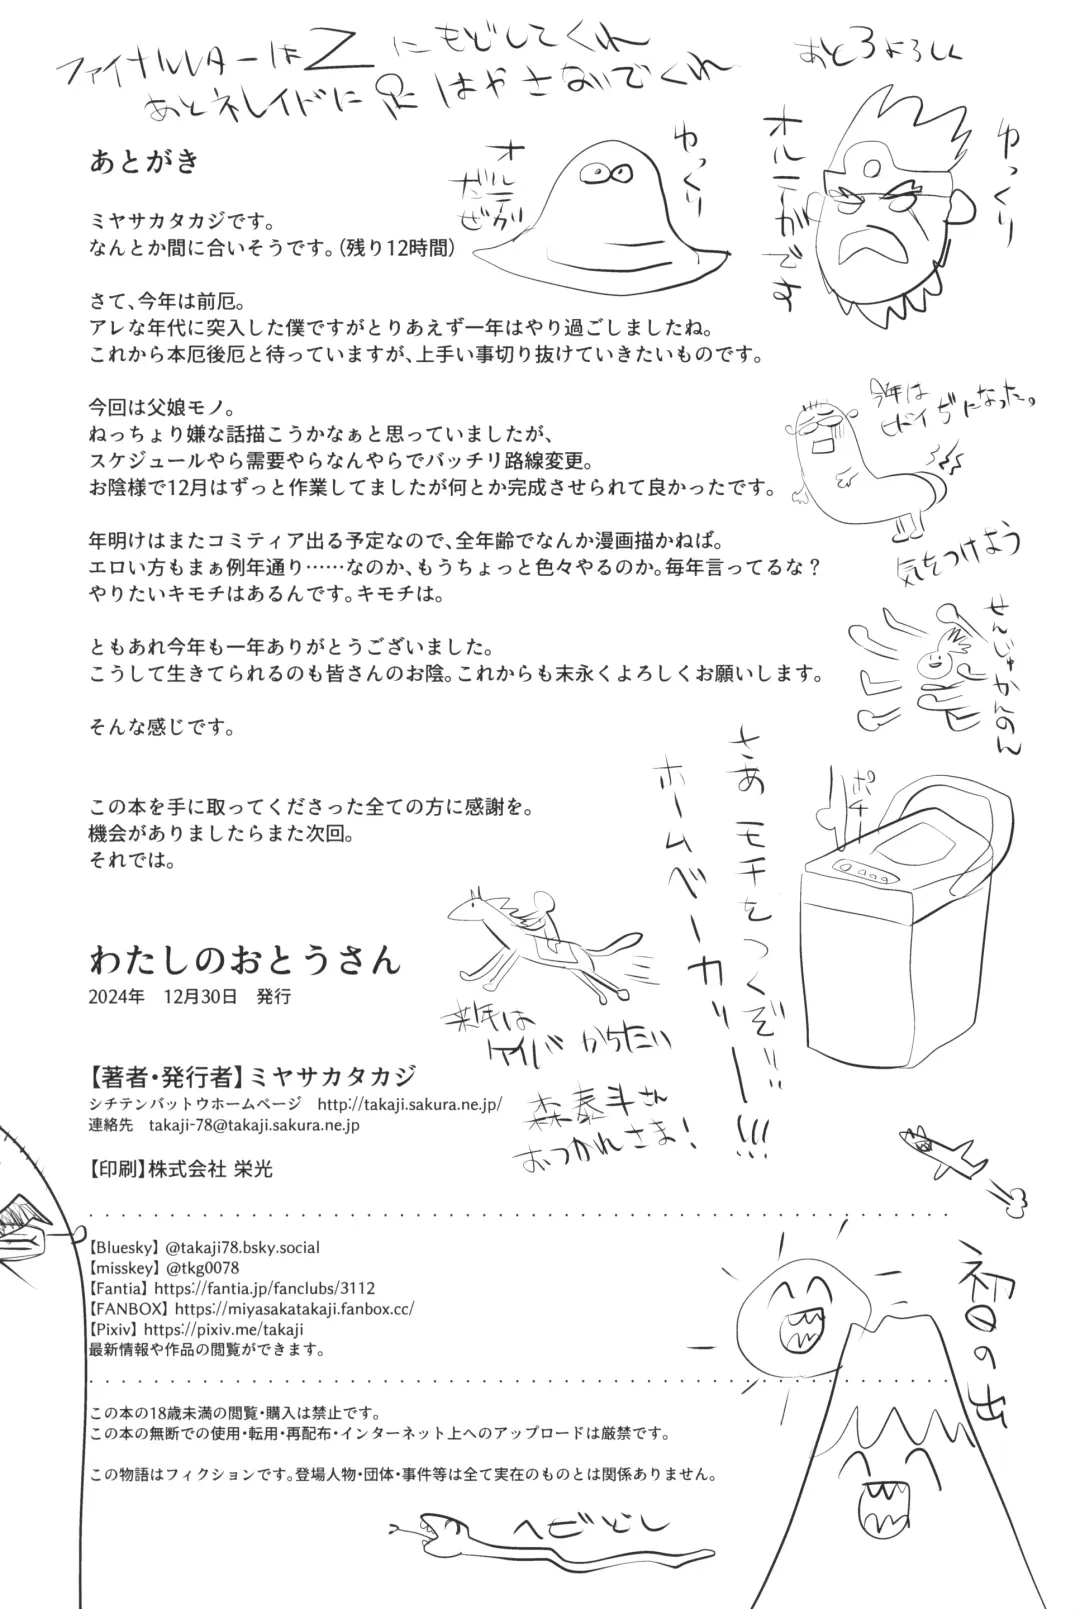 ファイナルレターはZにもどしてくれ
あとネレイドに足はやさないでくれ
あと3よろしく
あとがき
ゆっくり
オルテガだぜ
ゆっくり
オルテガですね
ミヤサカタカジです。
なんとか間に合いそうです。（残り12時間）
さて、今年は前厄。
アレな年代に突入した僕ですがとりあえず一年はやり過ごしましたね。
これから本厄後厄と待っていますが、上手い事切り抜けていきたいものです。
今回は父娘モノ。
ねっちょり嫌な話描こうかなぁと思っていましたが、
スケジュールやら需要やらなんやらでバッチリ路線変更。
お陰様で12月はずっと作業してましたが何とか完成させられて良かったです。
今年は
ヒドイぢになった。
気をつけよう
年明けはまたコミティア出る予定なので、全年齢でなんか漫画描かねば。
エロい方もまぁ例年通り……なのか、もうちょっと色々やるのか。毎年言ってるな？
やりたいキモチはあるんです。キモチは。
ともあれ今年も一年ありがとうございました。
こうして生きてられるのも皆さんのお陰。これからも末永くよろしくお願いします。
せんじゅかんのん
そんな感じです。
さあ モチをつくぞ!!
ホームベーカリー!!!
ポチー
この本を手に取ってくださった全ての方に感謝を。
機会がありましたらまた次回。
それでは。
わたしのおとうさん
2024年　12月30日　発行
来年は
ケイバ からたい
【著者・発行者】ミヤサカタカジ
シチテンバットウホームページ　http://takaji.sakura.ne.jp/
連絡先　takaji-78@takaji.sakura.ne.jp
森泰斗さん
おつかれさま!
【印刷】株式会社 栄光
【Bluesky】@takaji78.bsky.social
【misskey】@tkg0078
【Fantia】https://fantia.jp/fanclubs/3112
【FANBOX】https://miyasakatakaji.fanbox.cc/
【Pixiv】https://pixiv.me/takaji
最新情報や作品の閲覧ができます。
初日の出
この本の18歳未満の閲覧・購入は禁止です。
この本の無断での使用・転用・再配布・インターネット上へのアップロードは厳禁です。
この物語はフィクションです。登場人物・団体・事件等は全て実在のものとは関係ありません。
ヘビどし